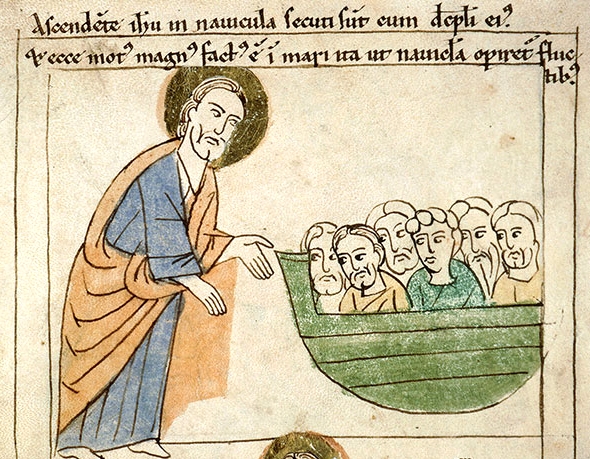 Ascendēte ihu in nauicula secuti sūt eum dcpłi ei⁹
⁊ ecce mot⁹ magn⁹ fact⁹ ē ī mari ita ut nauicła opiret̄ fluc
tib⁹